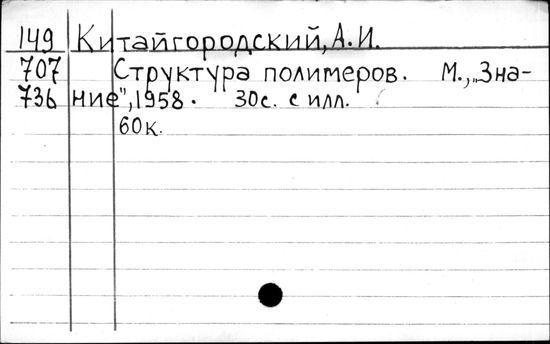 149 Китайгородский, А.И.
707 Структура полимеров. М., „Зна-
736 ние", 1958. 30с. с илл.
60к.